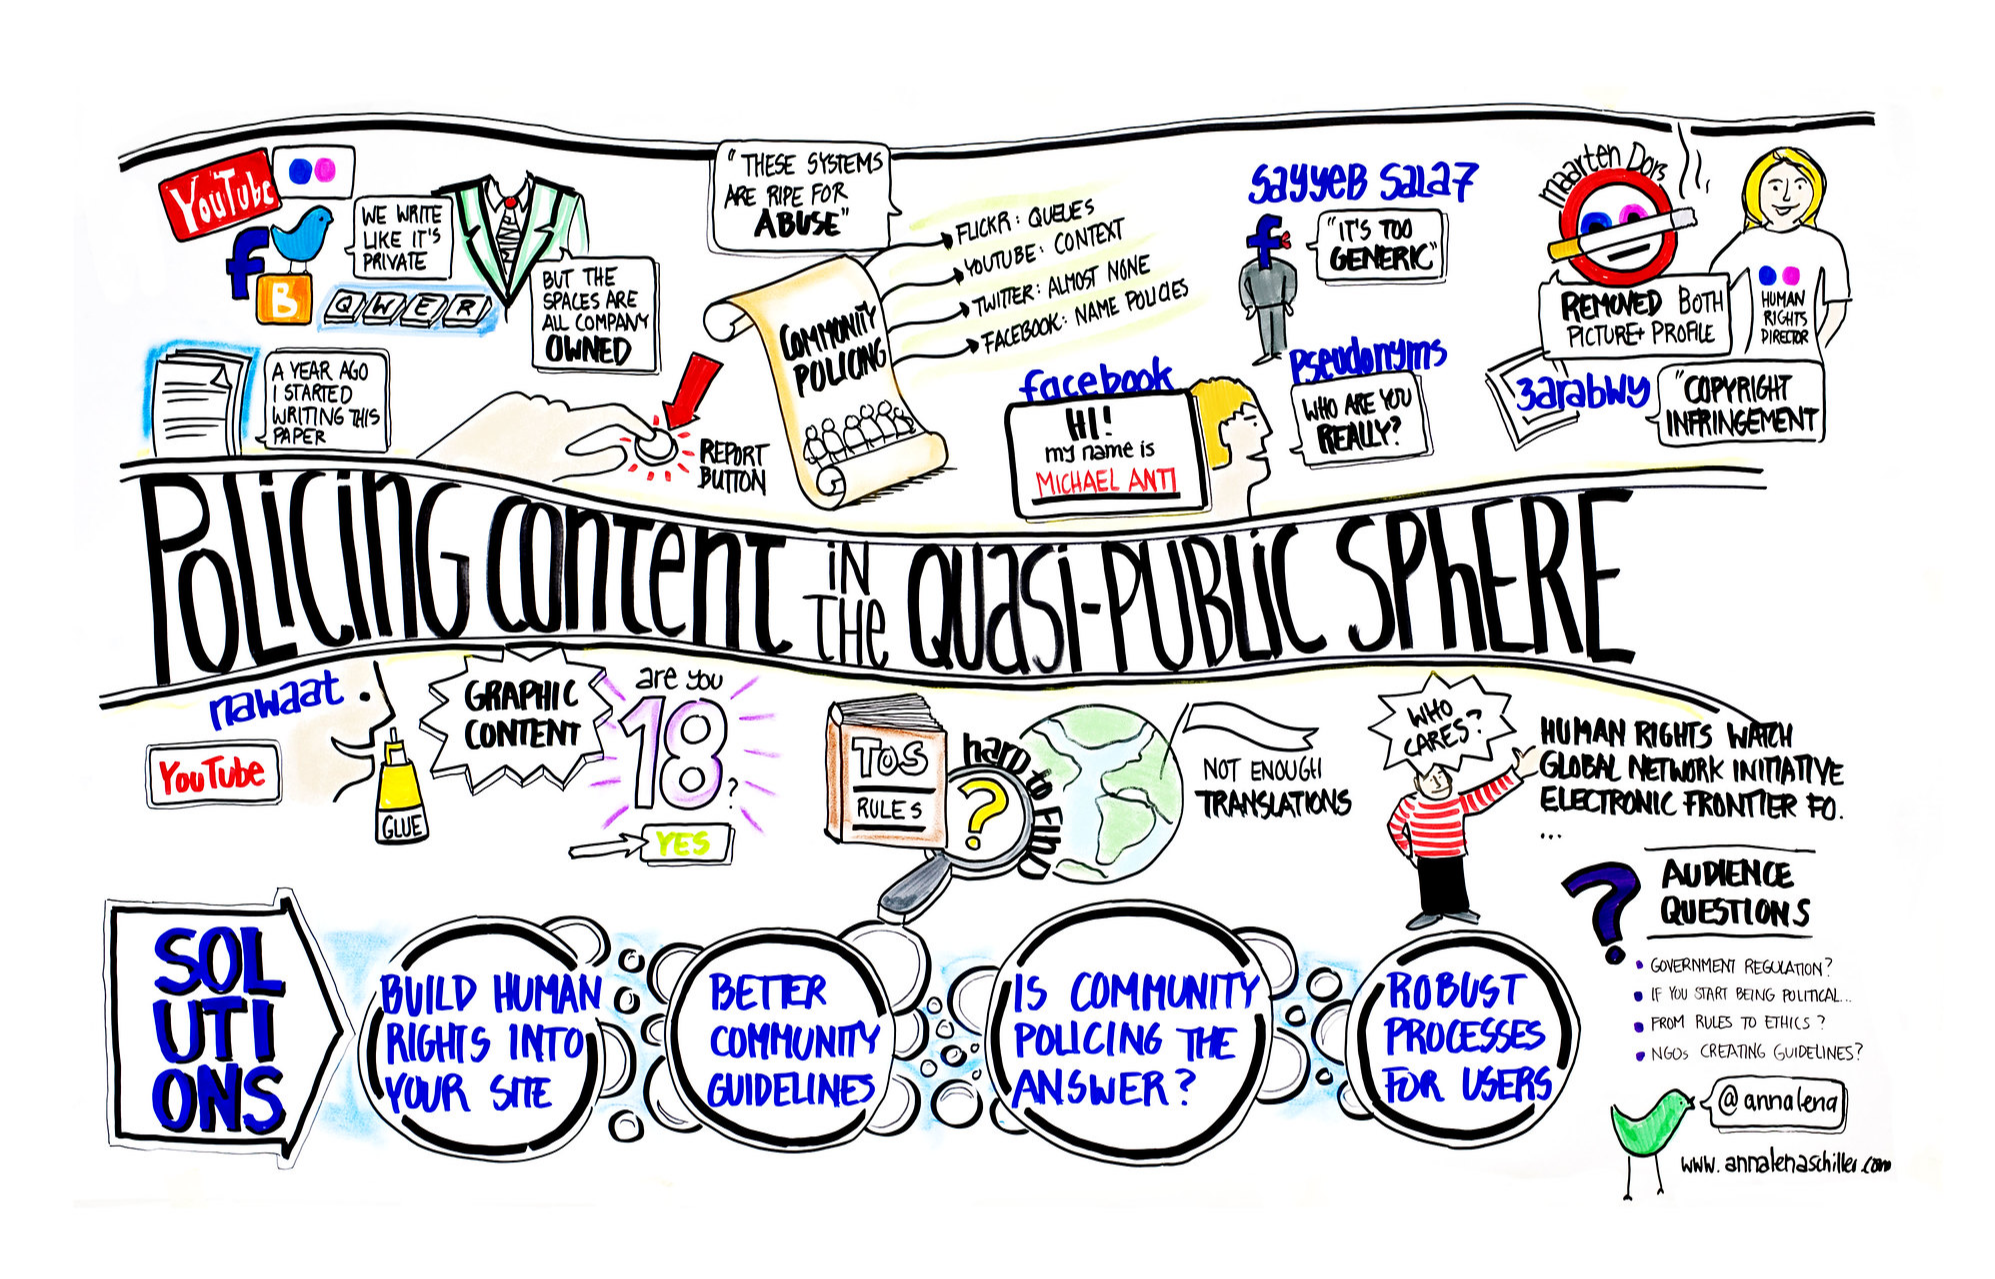 YouTube
f
B
WE WRITE
LIKE IT'S
PRIVATE
QWER
BUT THE
SPACES ARE
ALL COMPANY
OWNED
A YEAR AGO
I STARTED
WRITING THIS
PAPER
REPORT
BUTTON
"THESE SYSTEMS
ARE RIPE FOR
ABUSE"
COMMUNITY
POLICING
FLICKR: QUEUES
YOUTUBE: CONTEXT
TWITTER: ALMOST NONE
FACEBOOK: NAME POLICIES
facebook
HI!
my name is
MICHAEL ANTI
SayyeB Sala7
f
"IT'S TOO
GENERIC"
Pseudonyms
WHO ARE YOU
REALLY?
maarten Dors
REMOVED BOTH
PICTURE+ PROFILE
HUMAN
RIGHTS
DIRECTOR
3arabwy
"COPYRIGHT
INFRINGEMENT
POLICING CONTENT IN THE QUASI-PUBLIC SPHERE
nawaat
YouTube
GLUE
GRAPHIC
CONTENT
are you
18?
YES
TOS
RULES
?
hard to FIND
NOT ENOUGH
TRANSLATIONS
WHO
CARES?
HUMAN RIGHTS WATCH
GLOBAL NETWORK INITIATIVE
ELECTRONIC FRONTIER FO.
...
SOL
UTI
ONS
BUILD HUMAN
RIGHTS INTO
YOUR SITE
BETTER
COMMUNITY
GUIDELINES
IS COMMUNITY
POLICING THE
ANSWER?
ROBUST
PROCESSES
FOR USERS
?
AUDIENCE
QUESTIONS
• GOVERNMENT REGULATION?
• IF YOU START BEING POLITICAL...
• FROM RULES TO ETHICS?
• NGOs CREATING GUIDELINES?
@annalena
www.annalenaschiller.com